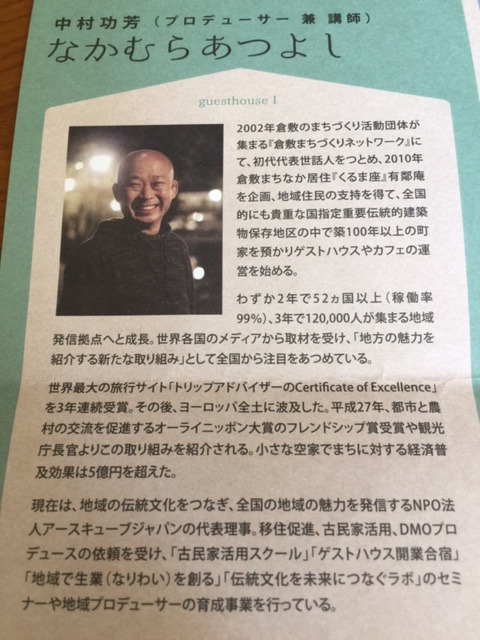 中村功芳（プロデューサー 兼 講師）
なかむらあつよし
guesthouse I
2002年倉敷のまちづくり活動団体が
集まる『倉敷まちづくりネットワーク』に
て、初代代表世話人をつとめ、2010年
倉敷まちなか居住『くるま座』有鄰庵
を企画、地域住民の支持を得て、全国
的にも貴重な国指定重要伝統的建築
物保存地区の中で築100年以上の町
家を預かりゲストハウスやカフェの運
営を始める。
わずか2年で52ヵ国以上（稼働率
99%）、3年で120,000人が集まる地域
発信拠点へと成長。世界各国のメディアから取材を受け、「地方の魅力を
紹介する新たな取り組み」として全国から注目をあつめている。
世界最大の旅行サイト「トリップアドバイザーのCertificate of Excellence」
を3年連続受賞。その後、ヨーロッパ全土に波及した。平成27年、都市と農
村の交流を促進するオーライニッポン大賞のフレンドシップ賞受賞や観光
庁長官よりこの取り組みを紹介される。小さな空家でまちに対する経済普
及効果は5億円を超えた。
現在は、地域の伝統文化をつなぎ、全国の地域の魅力を発信するNPO法
人アースキューブジャパンの代表理事。移住促進、古民家活用、DMOプロ
デュースの依頼を受け、「古民家活用スクール」「ゲストハウス開業合宿」
「地域で生業（なりわい）を創る」「伝統文化を未来につなぐラボ」のセミ
ナーや地域プロデューサーの育成事業を行っている。